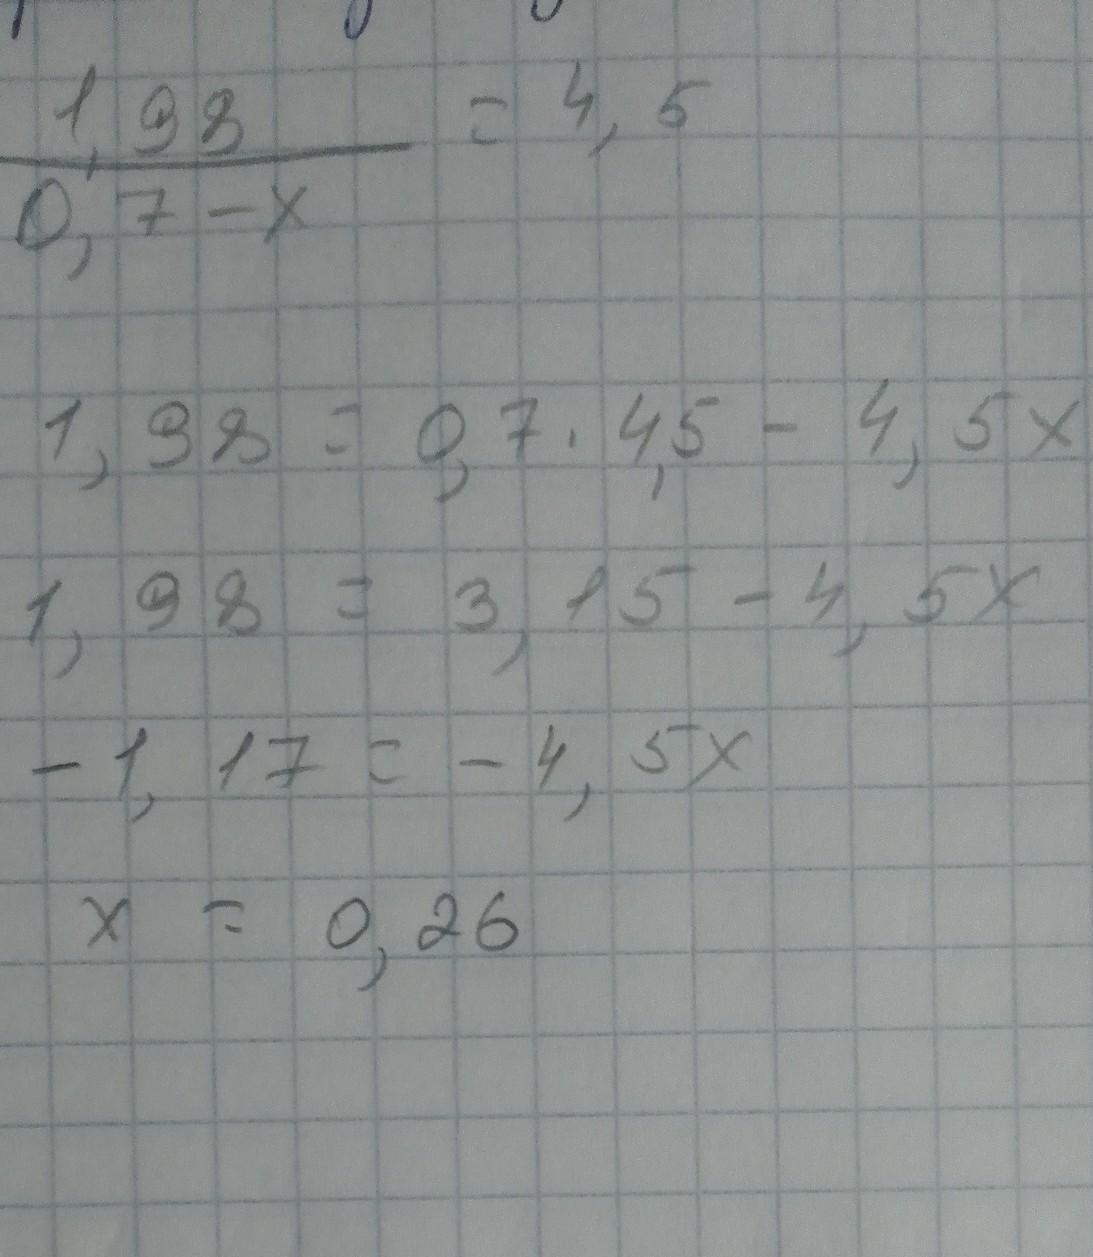 1,98 = 4,5
0,7 - x
1,98 = 0,7 · 4,5 - 4,5x
1,98 = 3,15 - 4,5x
-1,17 = -4,5x
x = 0,26